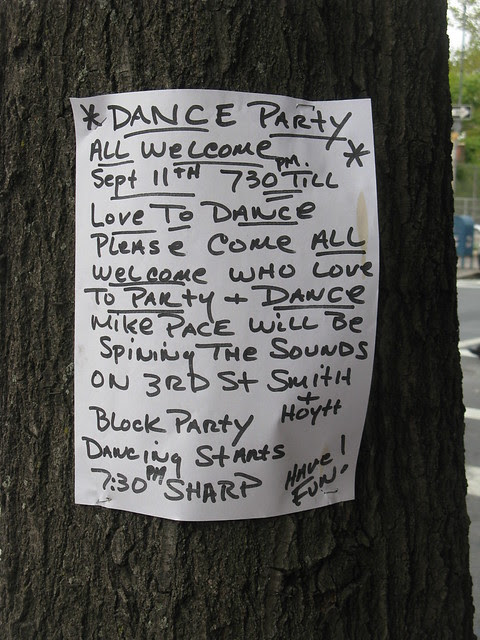 * DANCE PARTY
ALL WELCOME *
Sept 11TH 730 PM. TILL
Love To DANCE
PLeASe COMe ALL
WeLCOMe WHO LOVe
To PARty + DANCE
MIKe PACE WiLL Be
SPINING THe SOUNDS
ON 3RD St SMITH
+
HOYtt
BLOCK PARTY
DANCING StARtS
7:30 PM SHARP
HAVE
FUN!